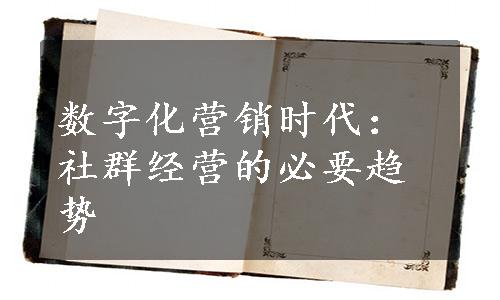 数字化营销时代：
社群经营的必要趋
势